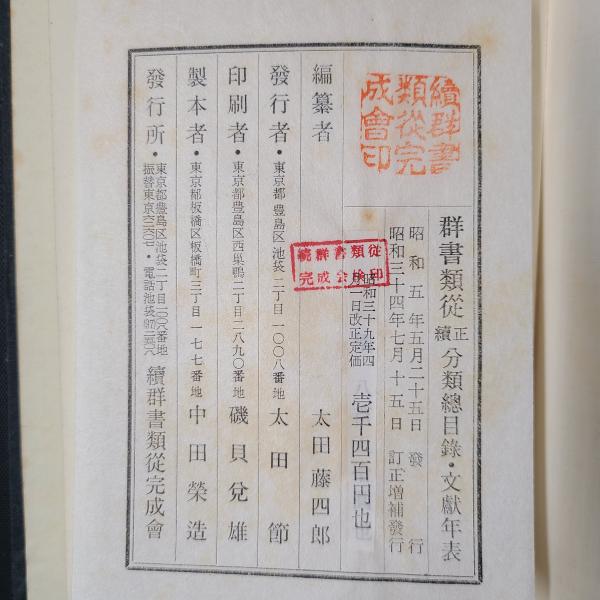 續群書
類從完
成會印
群書類從正續分類總目錄・文獻年表
昭和五年五月二十五日 發行
昭和三十四年七月十五日 訂正增補發行
続群書類従
完成会検印
昭和三十九年四
月一日改正定価
壱千四百円也
編纂者 太田藤四郎
發行者・東京都豊島区池袋二丁目一〇〇八番地 太田節
印刷者・東京都豊島区西巣鴨二丁目二八九〇番地 磯貝兌雄
製本者・東京都板橋区板橋町三丁目一七七番地 中田榮造
發行所・東京都豊島区池袋二丁目一〇〇八番地
續群書類從完成會